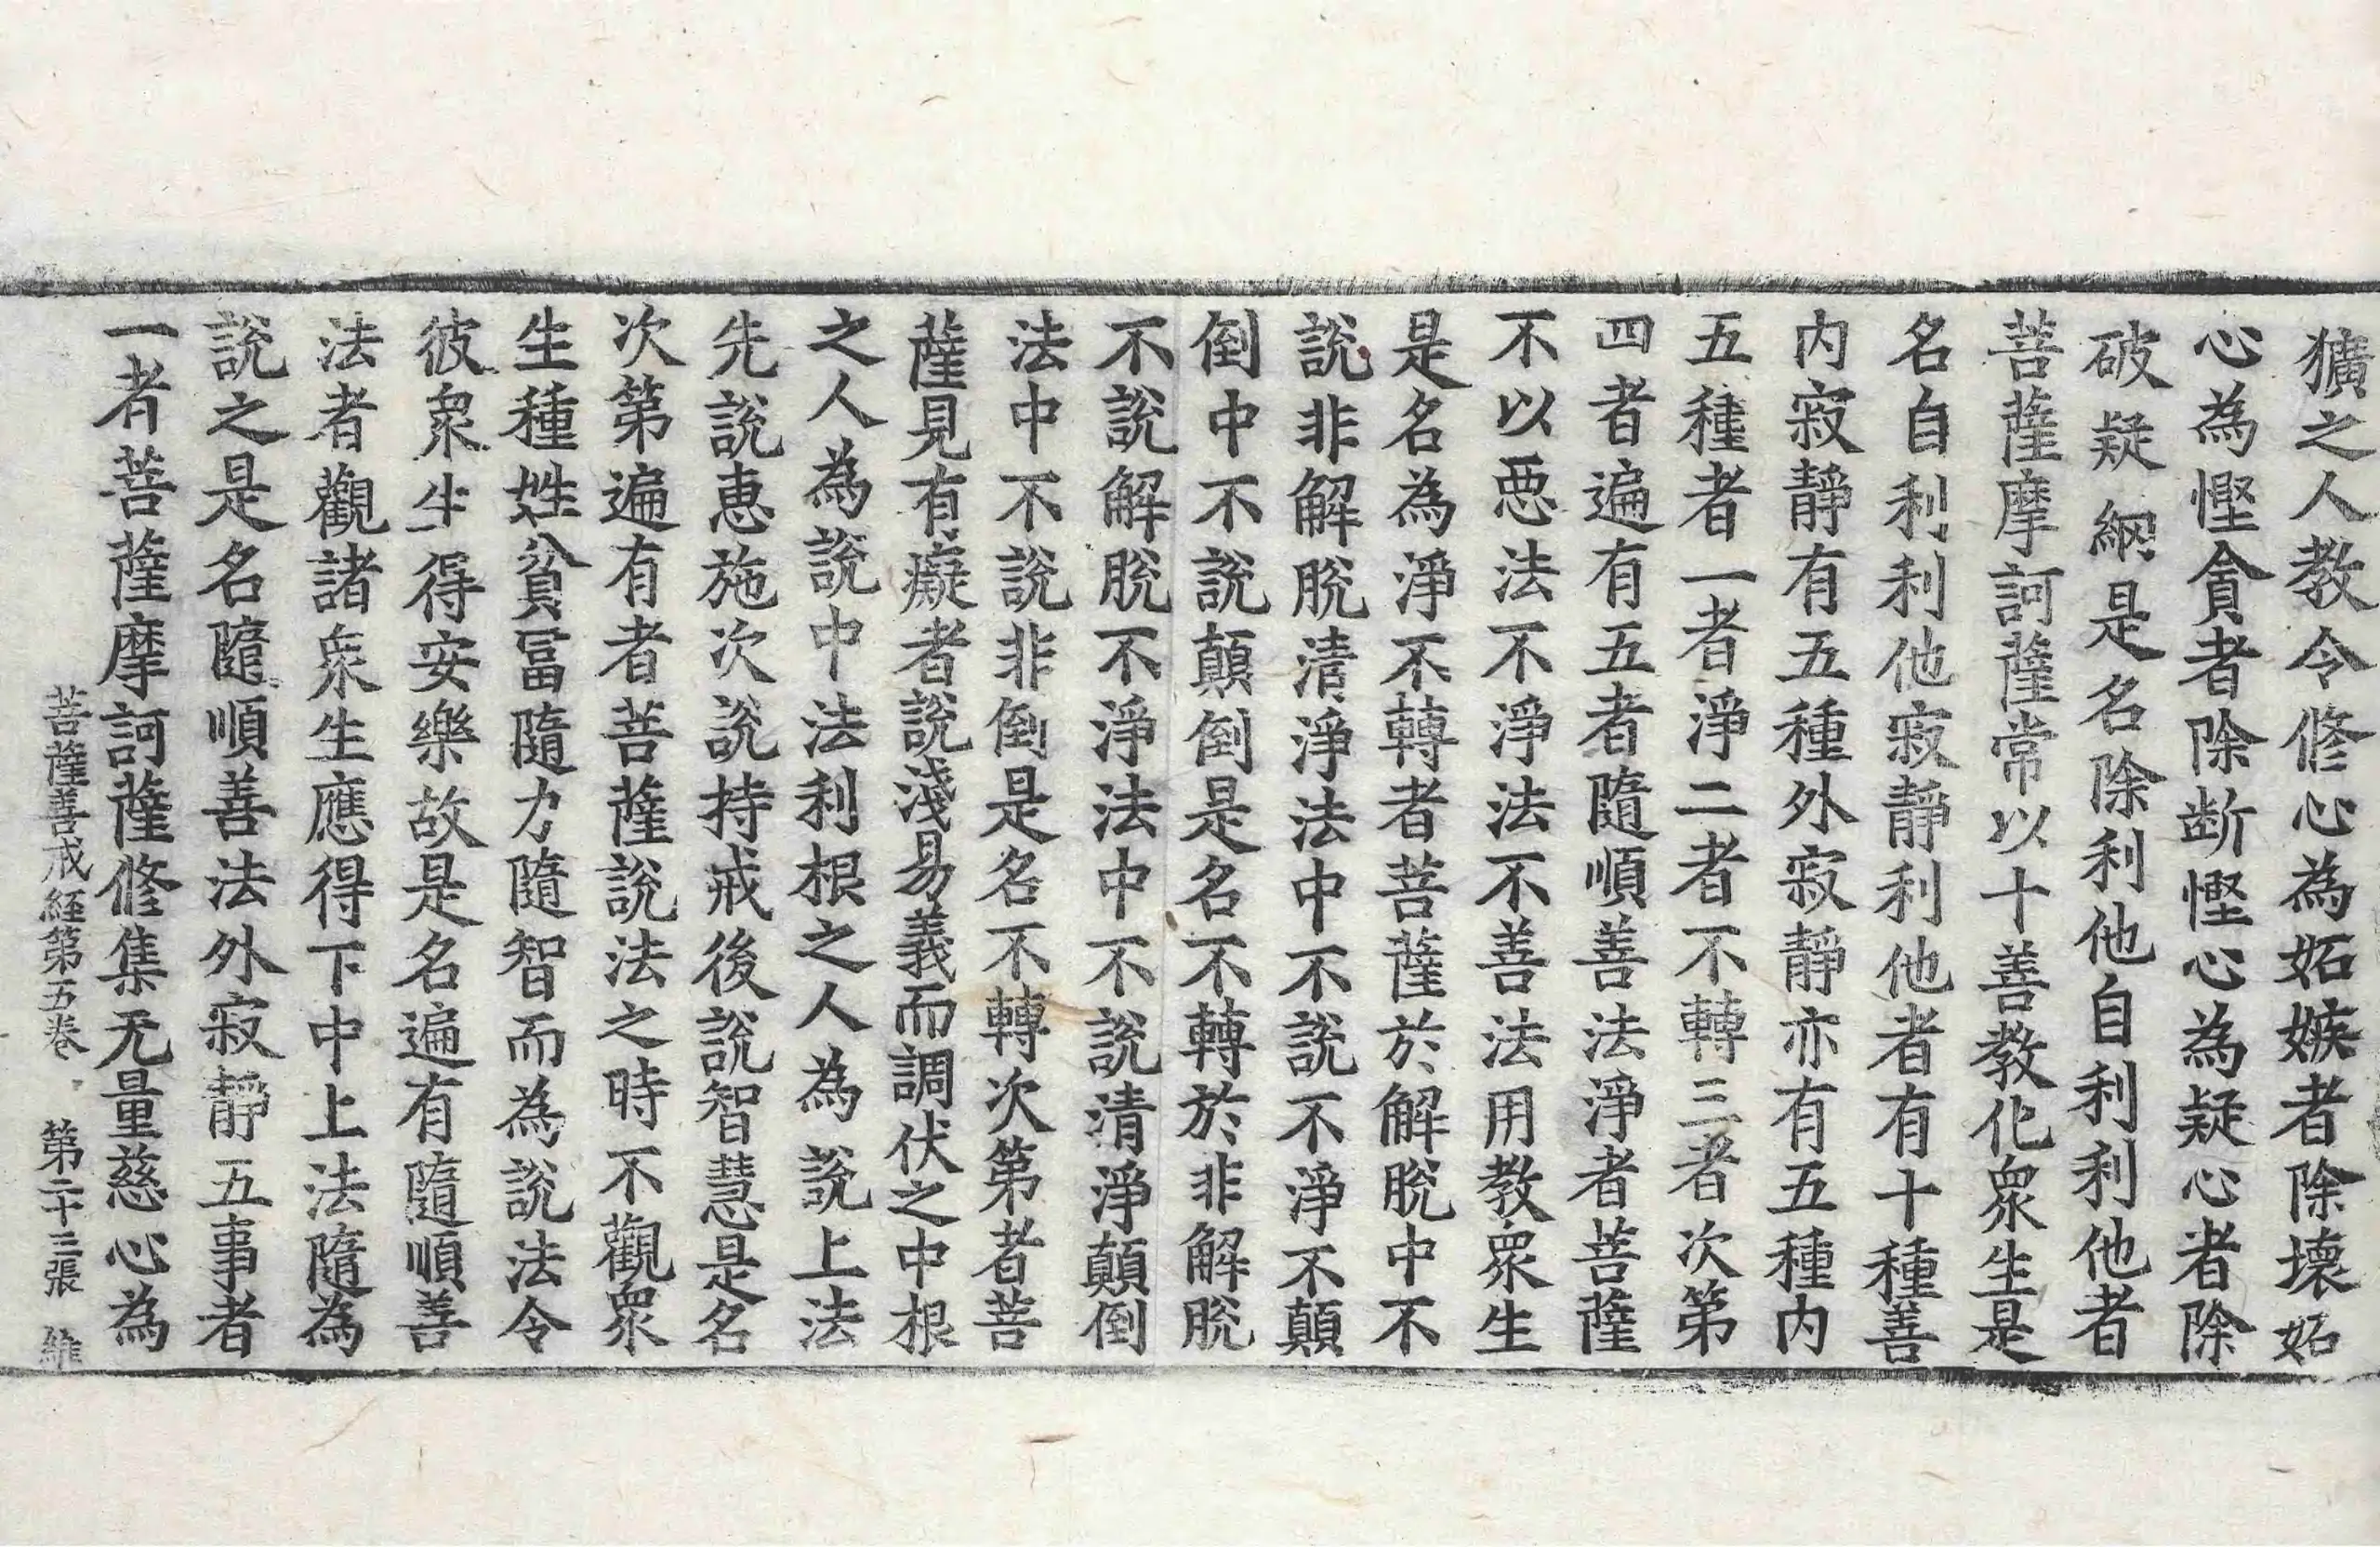 獷之人教令修心為妬嫉者除壞妬
心為慳貪者除断慳心為疑心者除
破疑網是名除利他自利利他者
菩薩摩訶薩常以十善教化衆生是
名自利利他寂靜利他者有十種善
内寂靜有五種外寂靜亦有五種内
五種者一者淨二者不轉三者次第
四者遍有五者隨順善法淨者菩薩
不以惡法不淨法不善法用教衆生
是名為淨不轉者菩薩於解脫中不
說非解脫清淨法中不說不淨不顛
倒中不說顛倒是名不轉於非解脫
不說解脫不淨法中不說清淨顛倒
法中不說非倒是名不轉次第者菩
薩見有癡者說淺易義而調伏之中根
之人為說中法利根之人為說上法
先說惠施次說持戒後說智慧是名
次第遍有者菩薩說法之時不觀衆
生種姓貧冨隨力隨智而為說法令
彼衆生得安樂故是名遍有隨順善
法者觀諸衆生應得下中上法隨為
說之是名隨順善法外寂靜五事者
一者菩薩摩訶薩修集无量慈心為
菩薩善戒経第五卷 第二十三張 維